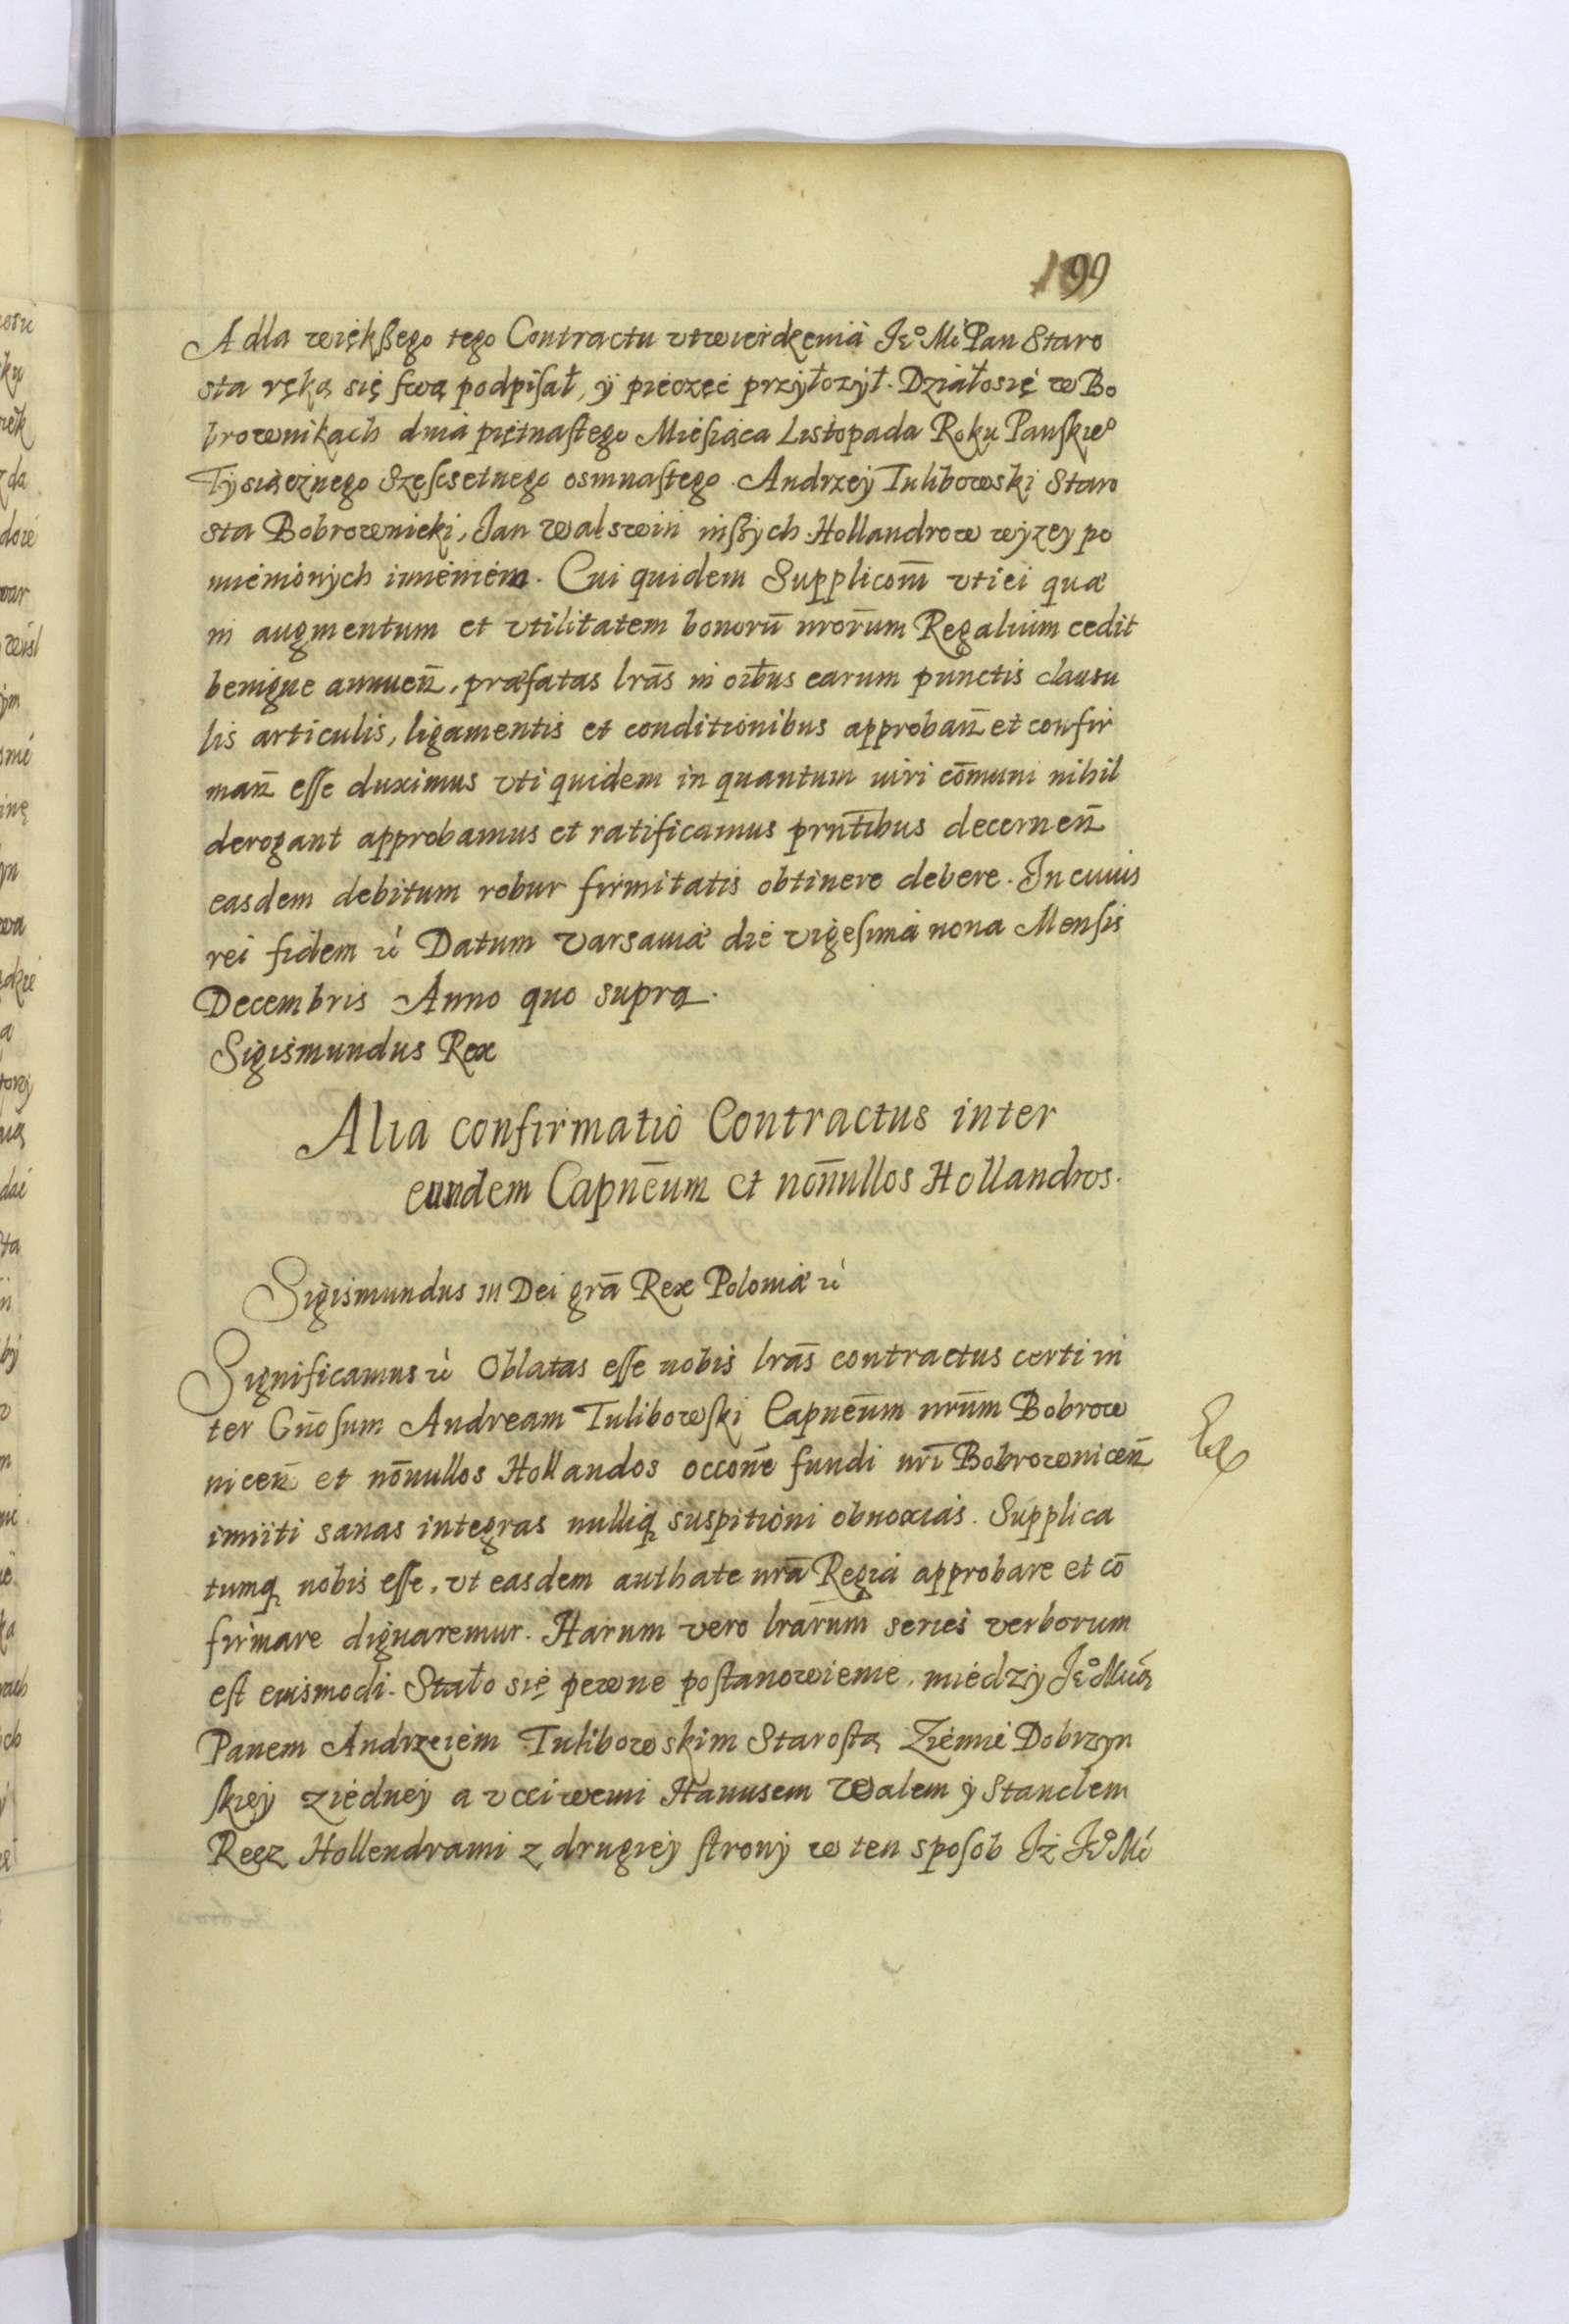 199
A dla więkßego tego Contractu vtwierdzenia Je⁰ Mć Pan Staro
sta ręką się swą podpisał, ÿ pieczęć przÿłozÿł. Działosię w Bo
brownikach dnia piętnastego Miesiąca Listopada Roku Panskie⁰
Tÿsiącznego Szescsetnego osmnastego. Andrzeÿ Tulibowski Staro
sta Bobrownicki, Jan Walswin inßÿch Hollandrow wÿzeÿ po
mienionÿch imieniem. Cui quidem Supplicom̄ vti ei quæ
in augmentum et vtilitatem bonorū nrōrum Regalium cedit
benigne annuen̄, præfatas lrās in oībus earum punctis clausu
lis articulis, ligamentis et conditionibus approban̄ et confir
man̄ esse duximus vti quidem in quantum iuri cōmuni nihil
derogant approbamus et ratificamus prn̄tibus decernen̄
easdem debitum robur firmitatis obtinere debere. In cuius
rei fidem ɾć Datum Varsaviæ die vigesima nona Mensis
Decembris Anno quo supra.
Sigismundus Rex
Alia confirmatio Contractus inter
eundem Capnēum et non̄ullos Hollandros.
Sigismundus III Dei grā Rex Poloniæ ɾć
Significamus ɾć Oblatas esse nobis lrās contractus certi in
ter Gn̄osum Andream Tulibowski Capnēum nrūm Bobrow
nicen̄ et nōnullos Hollandos occōne fundi nrī Bobrownicen̄
initi sanas integras nulliq suspitioni obnoxias. Supplica
tumq nobis esse, vt easdem authate nrā Regia approbare et cō
firmare dignaremur. Harum vero lrārum series verborum
est eiusmodi. Stało się pewne postanowienie, miedzÿ Je⁰ Mcią
Panem Andrzeiem Tulibowskim Starostą Ziemie Dobrzÿn
skieÿ ziedneÿ a vcciwemi Hanusem Walem ÿ Stanclem
Reez Hollendrami z drugieÿ stronÿ w ten sposób Jż Je⁰ Mć